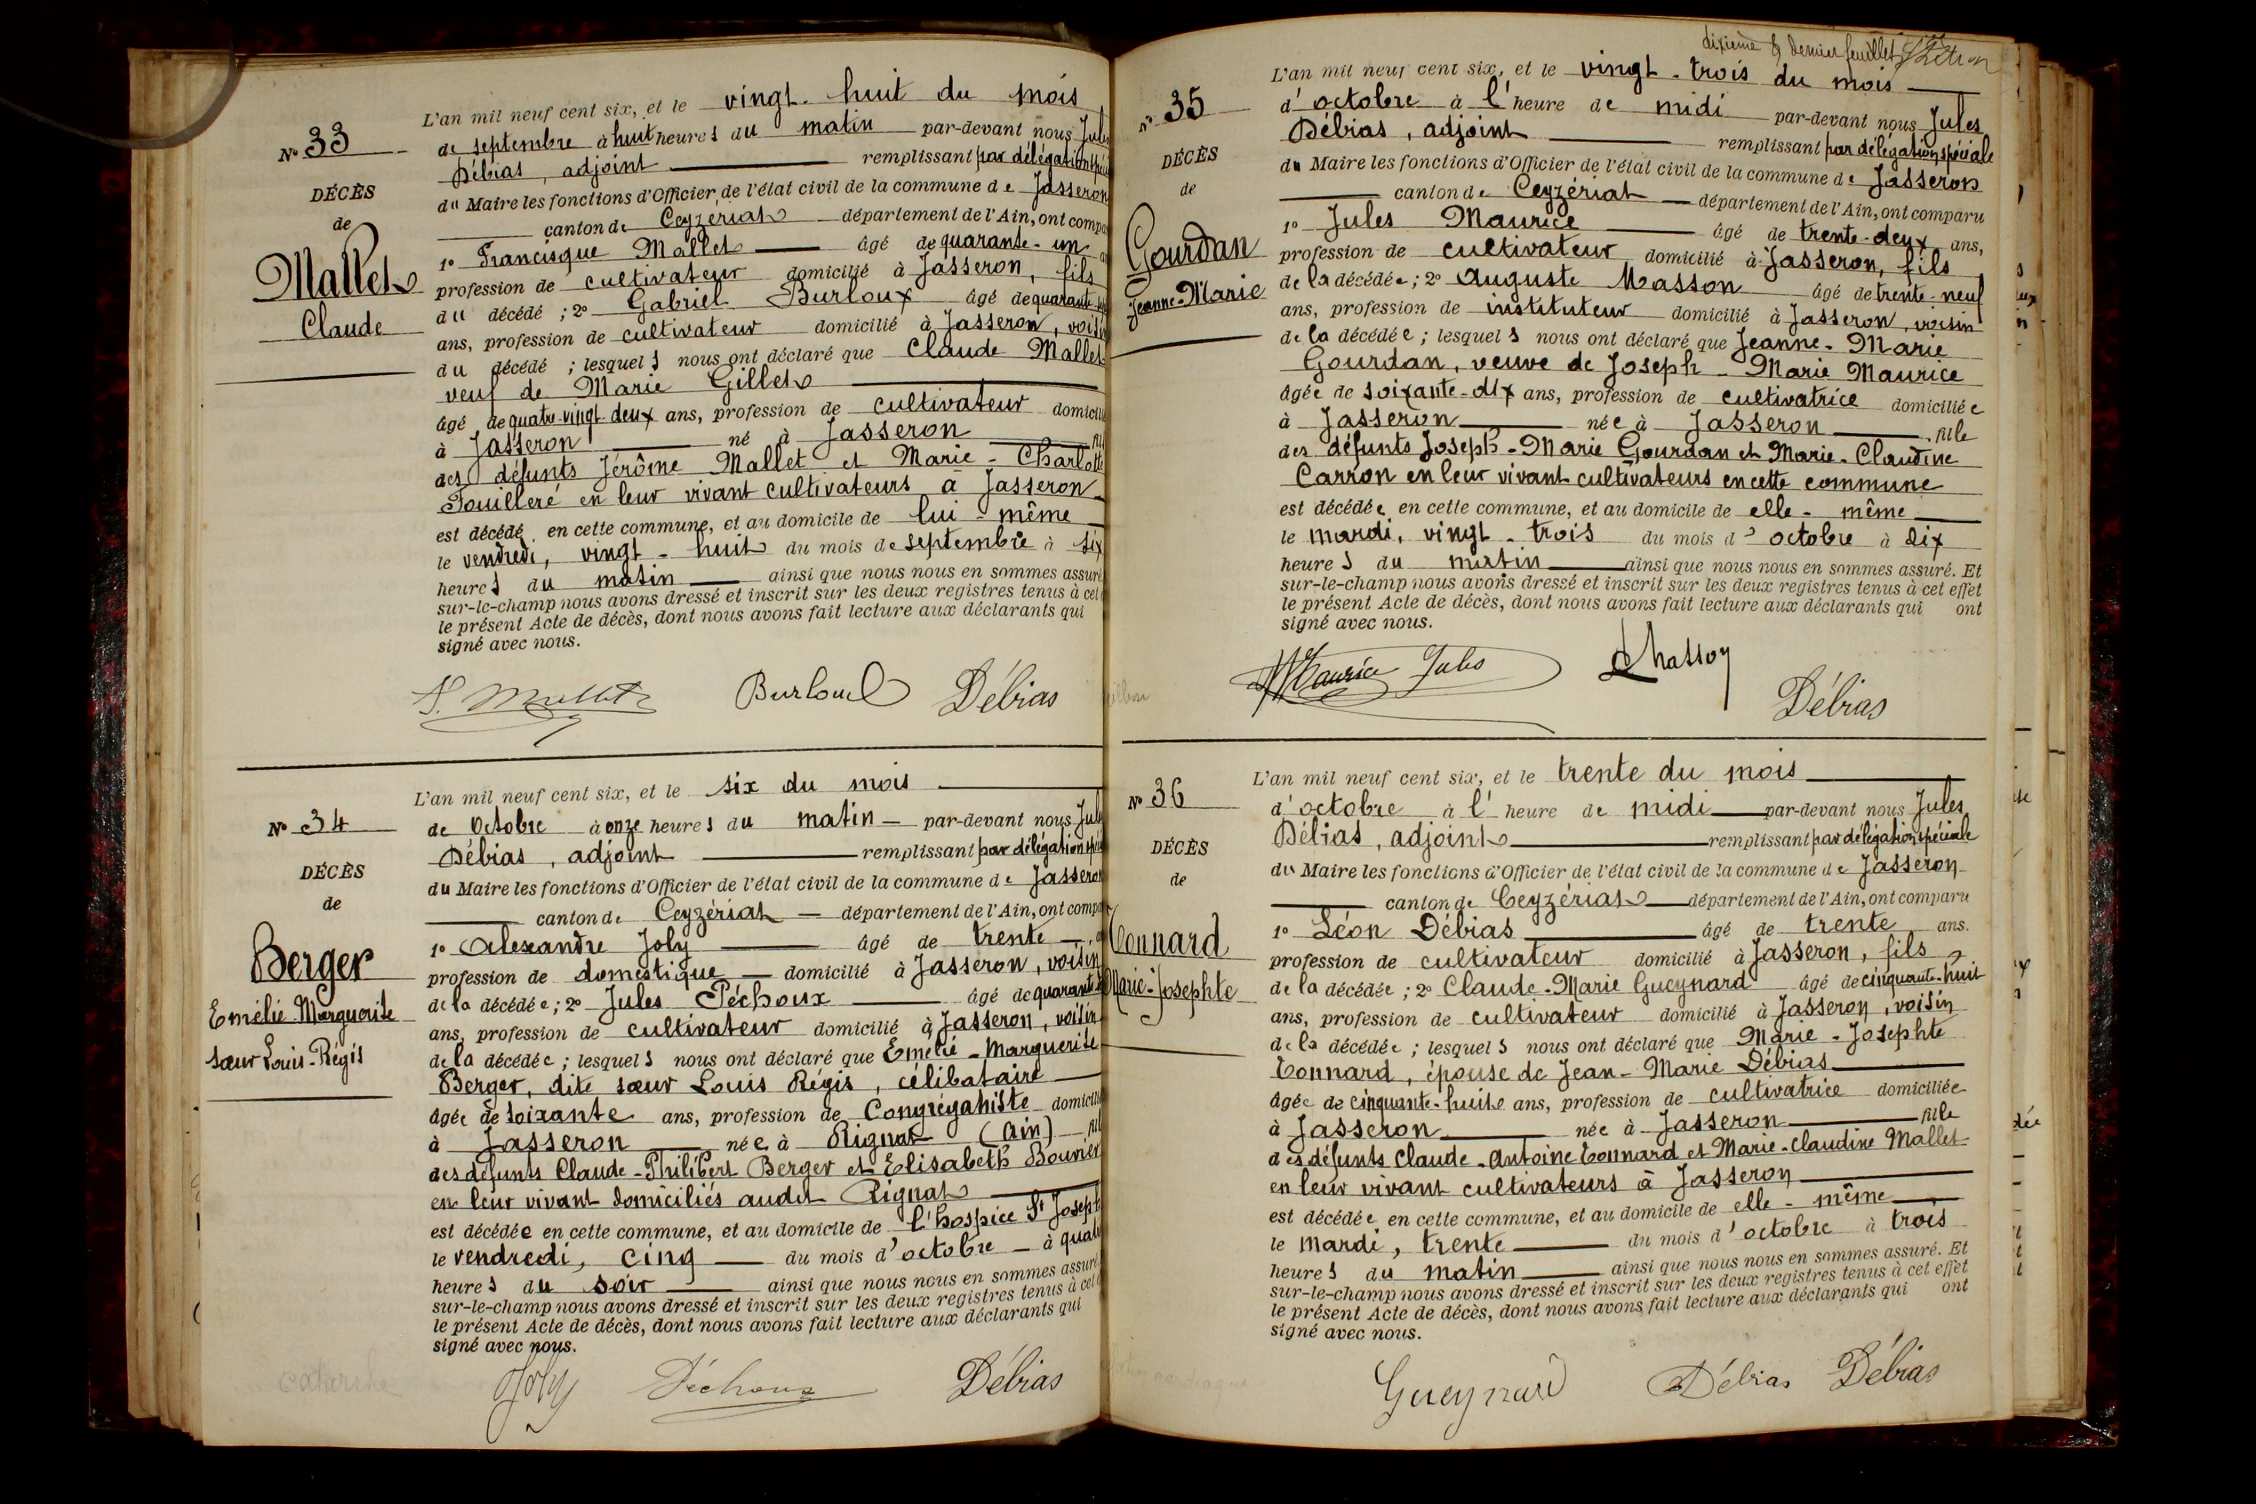 N° 33
DÉCÈS
de
Mallet
Claude
L'an mil neuf cent six, et le vingt-huit du mois
de septembre à huit heures du matin par-devant nous Jules
Débias, adjoint remplissant par délégation
du Maire les fonctions d'Officier de l'état civil de la commune de Jasseron
canton de Ceyzériat département de l'Ain, ont
1° Francisque Mallet âgé de quarante-un
profession de cultivateur domicilié à Jasseron, fils
du décédé ; 2° Gabriel Burloux âgé de quarante
ans, profession de cultivateur domicilié à Jasseron, voisin
du décédé ; lesquels nous ont déclaré que Claude Mallet
veuf de Marie Gillet
âgé de quatre-vingt-deux ans, profession de cultivateur
à Jasseron né à Jasseron
des défunts Jérôme Mallet et Marie-Charlotte
Fouilleré en leur vivant cultivateurs à Jasseron
est décédé en cette commune, et au domicile de lui-même
le vendredi, vingt-huit du mois de septembre à six
heures du matin ainsi que nous nous en sommes assuré
sur-le-champ nous avons dressé et inscrit sur les deux registres tenus à cet
le présent Acte de décès, dont nous avons fait lecture aux déclarants qui
signé avec nous.
F. Mallet Burloux Débias
N° 34
DÉCÈS
de
Berger
Emélie-Marguerite
sœur Louis-Régis
L'an mil neuf cent six, et le six du mois
de Octobre à onze heures du matin par-devant nous Jules
Débias, adjoint remplissant par délégation
du Maire les fonctions d'Officier de l'état civil de la commune de Jasseron
canton de Ceyzériat département de l'Ain, ont
1° Alexandre Joly âgé de trente
profession de domestique domicilié à Jasseron, voisin
de la décédée ; 2° Jules Péchoux âgé de quarante
ans, profession de cultivateur domicilié à Jasseron, voisin
de la décédée ; lesquels nous ont déclaré que Emélie-Marguerite
Berger, dite sœur Louis Régis, célibataire
âgée de soixante ans, profession de Congréganiste
à Jasseron née à Rignat (Ain)
des défunts Claude-Philibert Berger et Elisabeth Bouvier
en leur vivant domiciliés audit Rignat
est décédée en cette commune, et au domicile de l'hospice St Joseph
le vendredi, cinq du mois d'octobre à quatre
heures du soir ainsi que nous nous en sommes assuré
sur-le-champ nous avons dressé et inscrit sur les deux registres tenus à cet
le présent Acte de décès, dont nous avons fait lecture aux déclarants qui
signé avec nous.
Joly Péchoux Débias
dixième & dernier feuillet
N° 35
DÉCÈS
de
Gourdan
Jeanne-Marie
L'an mil neuf cent six, et le vingt-trois du mois
d'octobre à l'heure de midi par-devant nous Jules
Débias, adjoint remplissant par délégation spéciale
du Maire les fonctions d'Officier de l'état civil de la commune de Jasseron
canton de Ceyzériat département de l'Ain, ont comparu
1° Jules Maurice âgé de trente-deux ans,
profession de cultivateur domicilié à Jasseron, fils
de la décédée ; 2° Auguste Masson âgé de trente-neuf
ans, profession de instituteur domicilié à Jasseron, voisin
de la décédée ; lesquels nous ont déclaré que Jeanne-Marie
Gourdan, veuve de Joseph-Marie Maurice
âgée de soixante-dix ans, profession de cultivatrice domiciliée
à Jasseron née à Jasseron fille
des défunts Joseph-Marie Gourdan et Marie-Claudine
Carron en leur vivant cultivateurs en cette commune
est décédée en cette commune, et au domicile de elle-même
le mardi, vingt-trois du mois d'octobre à dix
heures du matin ainsi que nous nous en sommes assuré. Et
sur-le-champ nous avons dressé et inscrit sur les deux registres tenus à cet effet
le présent Acte de décès, dont nous avons fait lecture aux déclarants qui ont
signé avec nous.
Maurice Jules AMasson Débias
N° 36
DÉCÈS
de
Connard
Marie-Josephte
L'an mil neuf cent six, et le trente du mois
d'octobre à l'heure de midi par-devant nous Jules
Débias, adjoint remplissant par délégation spéciale
du Maire les fonctions d'Officier de l'état civil de la commune de Jasseron
canton de Ceyzériat département de l'Ain, ont comparu
1° Léon Débias âgé de trente ans.
profession de cultivateur domicilié à Jasseron, fils
de la décédée ; 2° Claude-Marie Gueynard âgé de cinquante-huit
ans, profession de cultivateur domicilié à Jasseron, voisin
de la décédée ; lesquels nous ont déclaré que Marie-Josephte
Connard, épouse de Jean-Marie Débias
âgée de cinquante-huit ans, profession de cultivatrice domiciliée
à Jasseron née à Jasseron fille
des défunts Claude-Antoine Connard et Marie-Claudine Mallet
en leur vivant cultivateurs à Jasseron
est décédée en cette commune, et au domicile de elle-même
le mardi, trente du mois d'octobre à trois
heures du matin ainsi que nous nous en sommes assuré. Et
sur-le-champ nous avons dressé et inscrit sur les deux registres tenus à cet effet
le présent Acte de décès, dont nous avons fait lecture aux déclarants qui ont
signé avec nous.
Gueynard Débias Débias